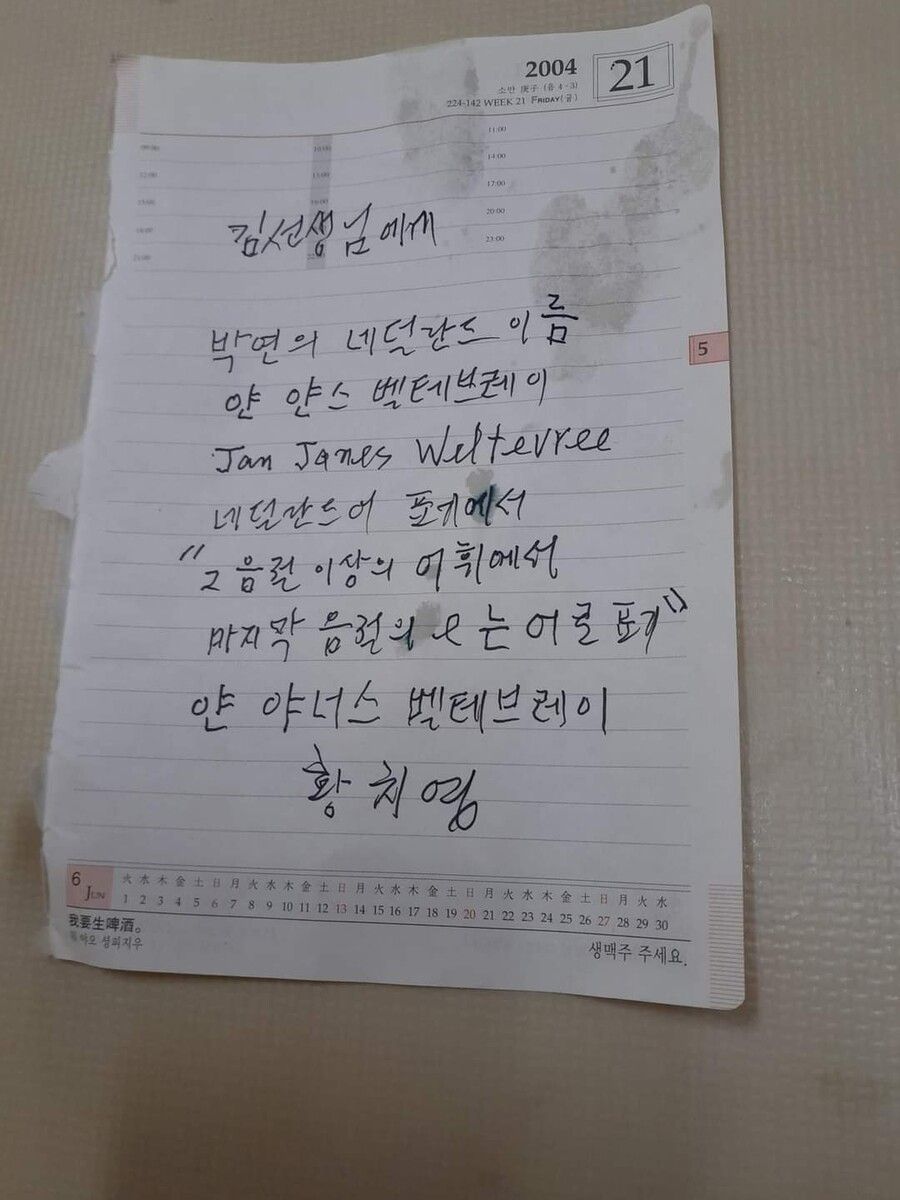 2004 21
소만 庚子 (음 4-3)
224-142 WEEK 21 FRIDAY(금)
09:00 10:00 11:00
12:00 13:00 14:00
15:00 16:00 17:00
18:00 20:00
21:00 22:00 23:00
김선생님에게
박연의 네덜란드 이름
5
얀 얀스 벨테브레이
Jan Janes Weltevree
네덜란드어 표기에서
"2음절 이상의 어휘에서
마지막 음절의 e는 어로 표기"
얀 야너스 벨테브레이
황치영
6 JUN 火 水 木 金 土 日 月 火 水 木 金 土 日 月 火 水 木 金 土 日 月 火 水 木 金 土 日 月 火 水
1 2 3 4 5 6 7 8 9 10 11 12 13 14 15 16 17 18 19 20 21 22 23 24 25 26 27 28 29 30
我要生啤酒。
야오 셩피지우 생맥주 주세요.